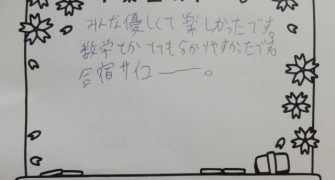 みんな優しくて楽しかったです。
数学とかとても分かりやすかったです。
合宿サイコー――。